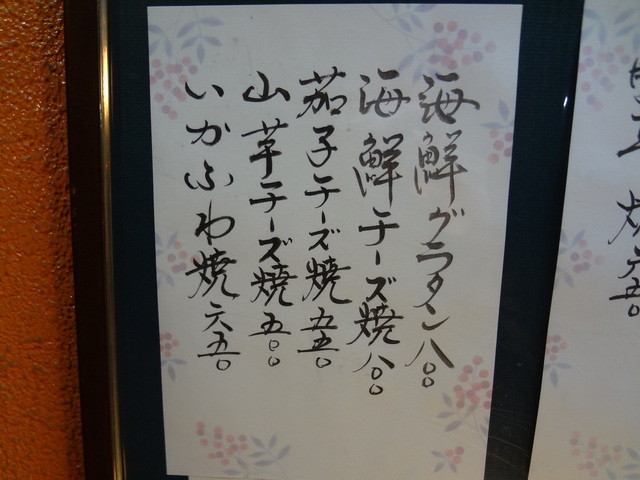 海鮮グラタン 八〇〇
海鮮チーズ焼 八〇〇
茄子チーズ焼 五五〇
山芋チーズ焼 五〇〇
いかふわ焼 六五〇